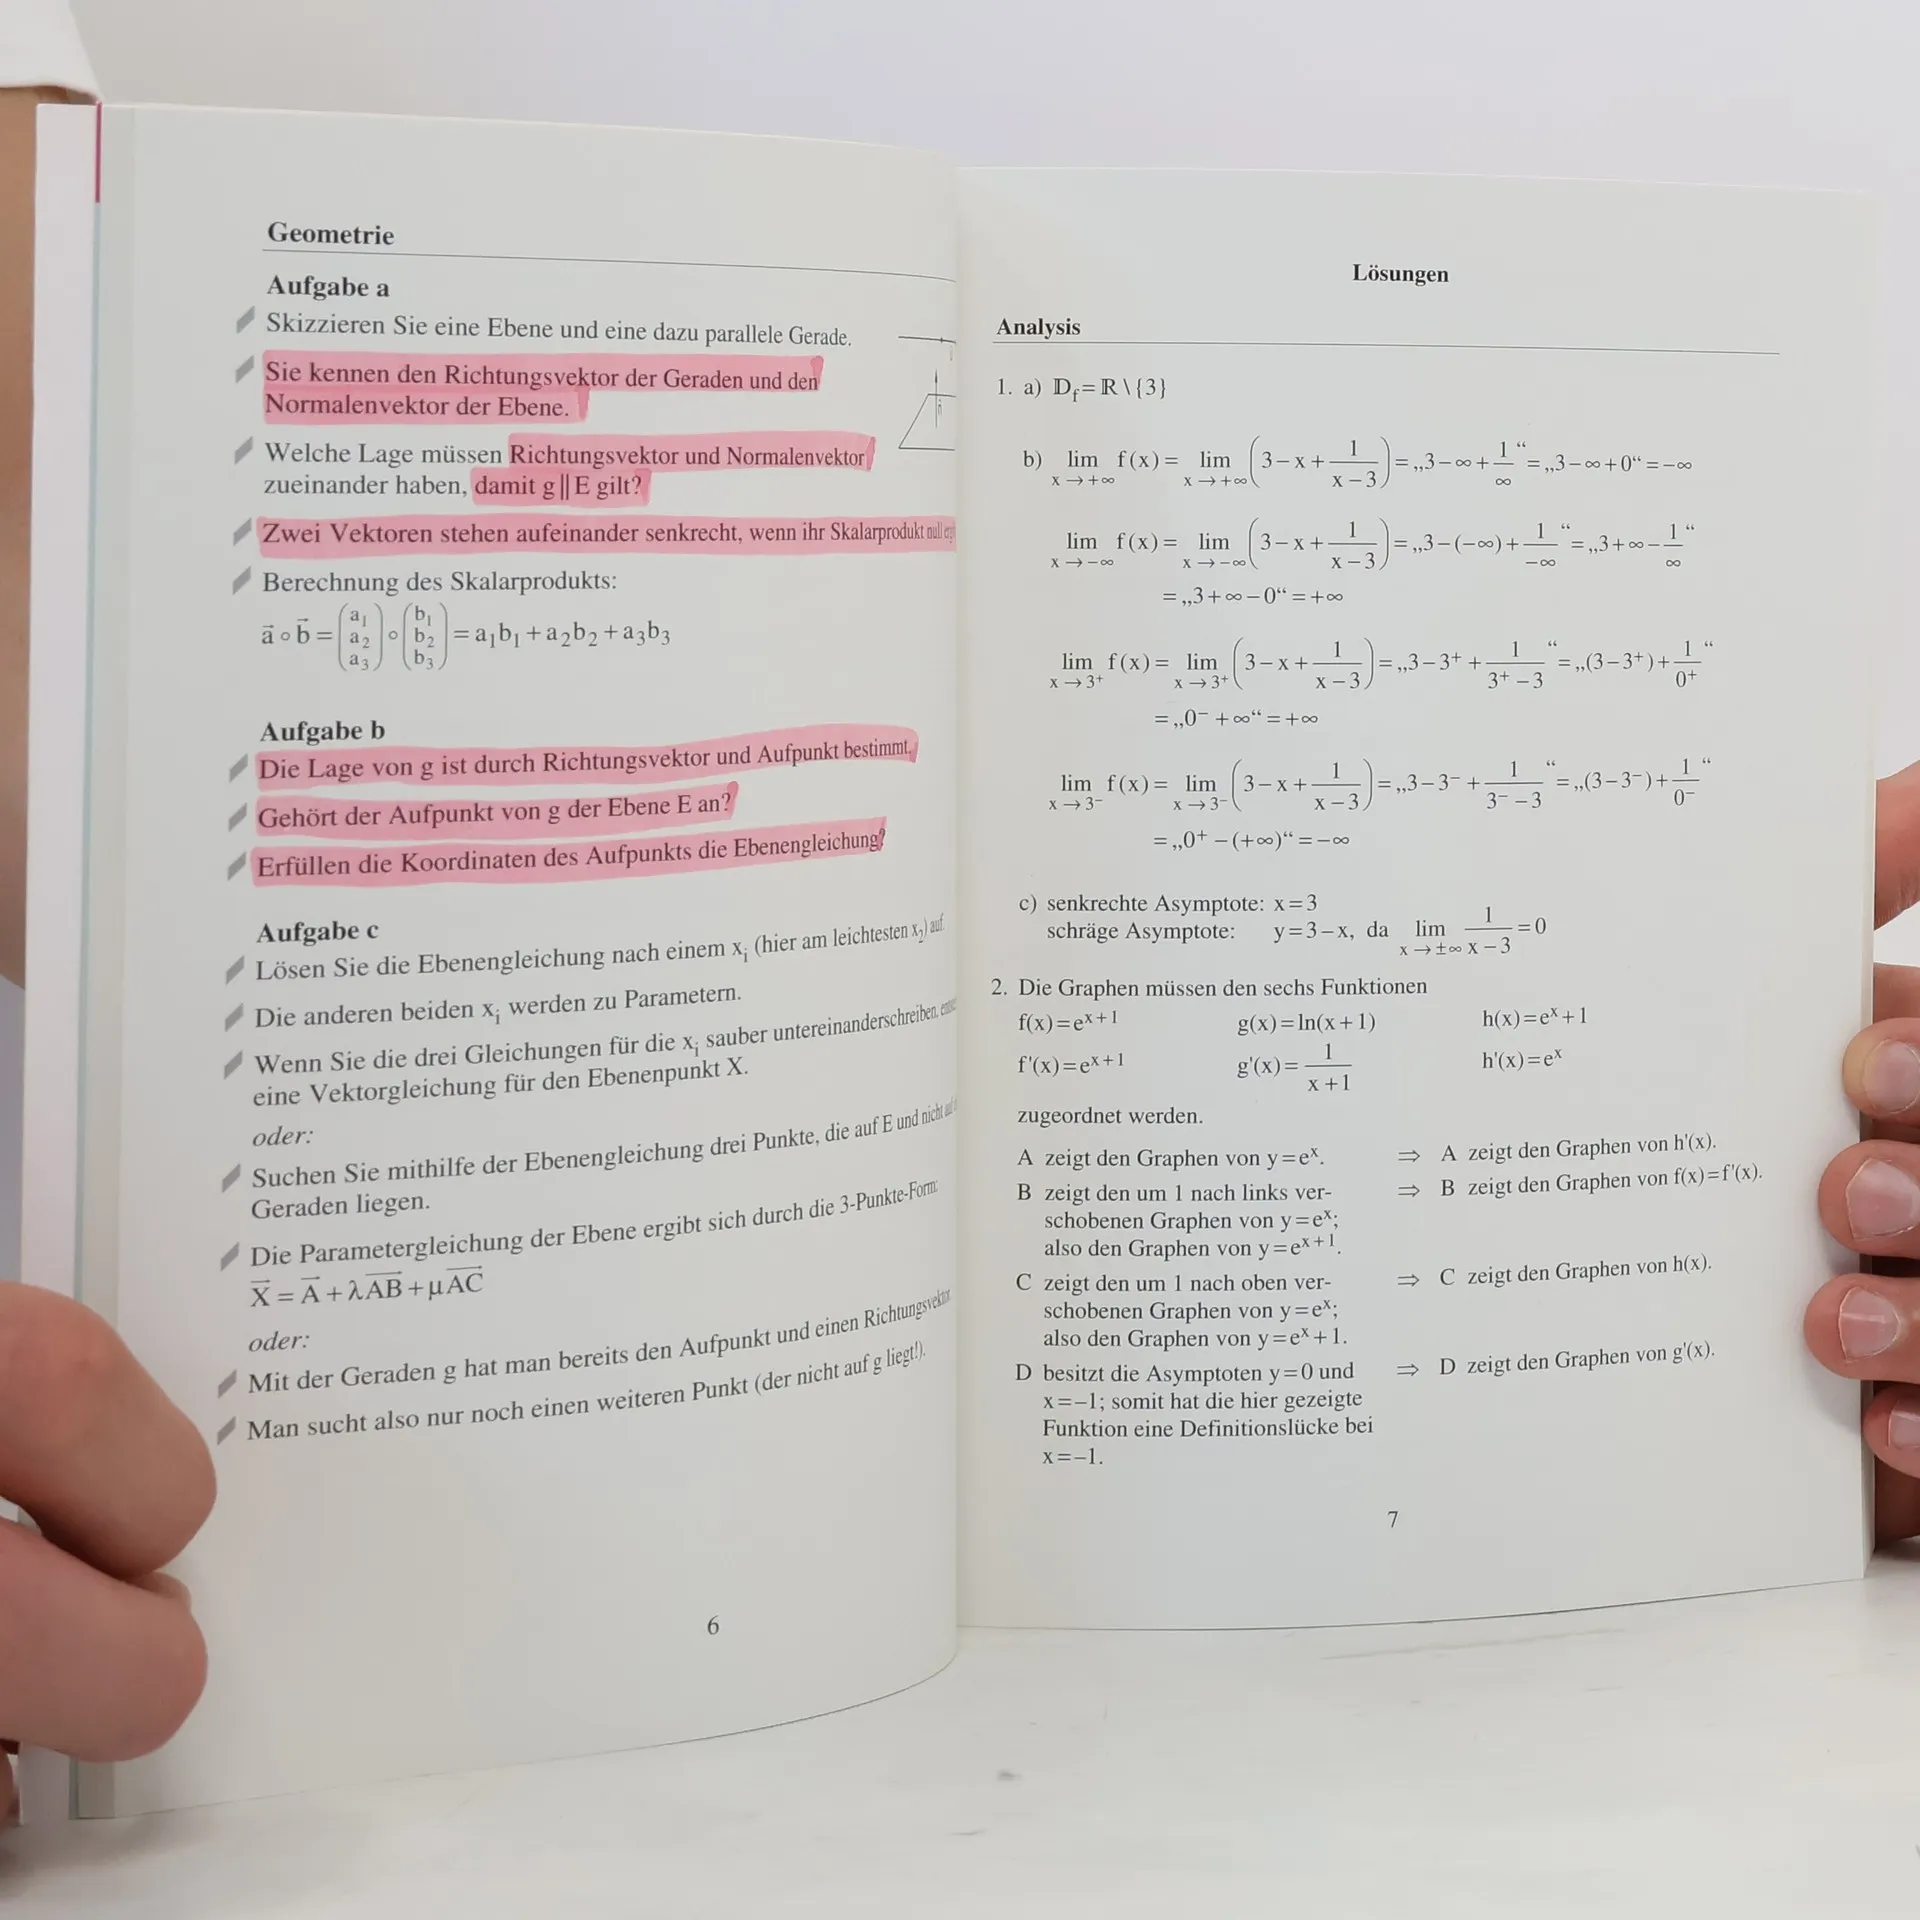 Geometrie
Aufgabe a
Skizzieren Sie eine Ebene und eine dazu parallele Gerade.
Sie kennen den Richtungsvektor der Geraden und den
Normalenvektor der Ebene.
Welche Lage müssen Richtungsvektor und Normalenvektor
zueinander haben, damit g || E gilt?
Zwei Vektoren stehen aufeinander senkrecht, wenn ihr Skalarprodukt null
Berechnung des Skalarprodukts:
a⃗ ∘ b⃗ = (a₁ a₂ a₃) ∘ (b₁ b₂ b₃) = a₁b₁ + a₂b₂ + a₃b₃
Aufgabe b
Die Lage von g ist durch Richtungsvektor und Aufpunkt bestimmt.
Gehört der Aufpunkt von g der Ebene E an?
Erfüllen die Koordinaten des Aufpunkts die Ebenengleichung?
Aufgabe c
Lösen Sie die Ebenengleichung nach einem xᵢ (hier am leichtesten x₂) auf.
Die anderen beiden xᵢ werden zu Parametern.
Wenn Sie die drei Gleichungen für die xᵢ sauber untereinanderschreiben,
eine Vektorgleichung für den Ebenenpunkt X.
oder:
Suchen Sie mithilfe der Ebenengleichung drei Punkte, die auf E und nicht
Geraden liegen.
Die Parametergleichung der Ebene ergibt sich durch die 3-Punkte-Form:
X⃗ = A⃗ + λ AB⃗ + μ AC⃗
oder:
Mit der Geraden g hat man bereits den Aufpunkt und einen Richtungsvektor.
Man sucht also nur noch einen weiteren Punkt (der nicht auf g liegt!).
6
Lösungen
Analysis
1. a) 𝔻f = ℝ \ {3}
b) lim x→+∞ f(x) = lim x→+∞ (3 – x + 1/(x – 3)) = „3 – ∞ + 1/∞“ = „3 – ∞ + 0“ = –∞
lim x→–∞ f(x) = lim x→–∞ (3 – x + 1/(x – 3)) = „3 – (–∞) + 1/–∞“ = „3 + ∞ – 1/∞“
= „3 + ∞ – 0“ = +∞
lim x→3⁺ f(x) = lim x→3⁺ (3 – x + 1/(x – 3)) = „3 – 3⁺ + 1/(3⁺ – 3)“ = „(3 – 3⁺) + 1/0⁺“
= „0⁻ + ∞“ = +∞
lim x→3⁻ f(x) = lim x→3⁻ (3 – x + 1/(x – 3)) = „3 – 3⁻ + 1/(3⁻ – 3)“ = „(3 – 3⁻) + 1/0⁻“
= „0⁺ – (+∞)“ = –∞
c) senkrechte Asymptote: x = 3
schräge Asymptote: y = 3 – x, da lim x→±∞ 1/(x – 3) = 0
2. Die Graphen müssen den sechs Funktionen
f(x) = eˣ⁺¹ g(x) = ln(x + 1) h(x) = eˣ + 1
f'(x) = eˣ⁺¹ g'(x) = 1/(x + 1) h'(x) = eˣ
zugeordnet werden.
A zeigt den Graphen von y = eˣ. ⇒ A zeigt den Graphen von h'(x).
B zeigt den um 1 nach links ver- ⇒ B zeigt den Graphen von f(x) = f'(x).
schobenen Graphen von y = eˣ;
also den Graphen von y = eˣ⁺¹.
C zeigt den um 1 nach oben ver- ⇒ C zeigt den Graphen von h(x).
schobenen Graphen von y = eˣ;
also den Graphen von y = eˣ + 1.
D besitzt die Asymptoten y = 0 und ⇒ D zeigt den Graphen von g'(x).
x = –1; somit hat die hier gezeigte
Funktion eine Definitionslücke bei
x = –1.
7